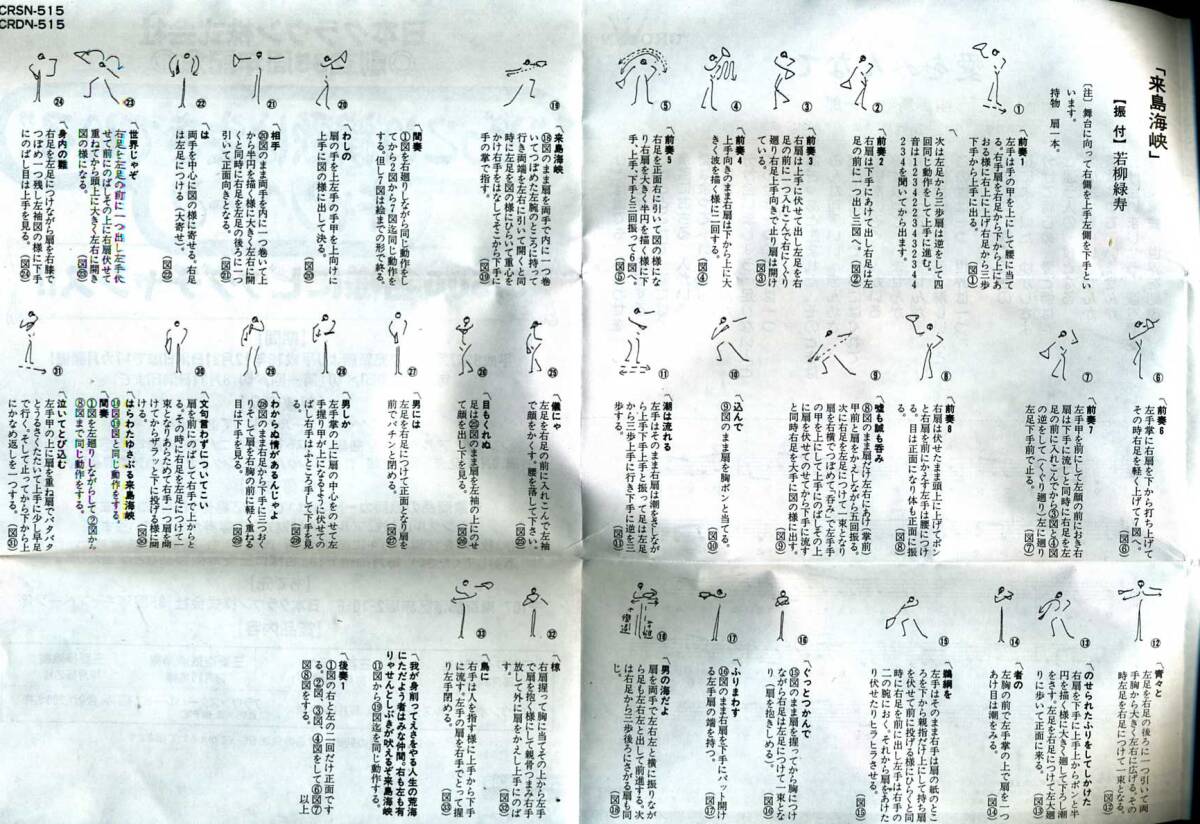 CRSN-515
CRDN-515
「来島海峡」
【振付】若柳緑寿
〔注〕舞台に向って右側を上手左側を下手とい
います。
持物 扇一本。
前奏1
左手は手の甲を上にして腰に当て
る。右手扇を右足から下から上にあ
おる様に右上に上げ右足から三歩
下手から上手に出る。 (図①)
次は左足から三歩扇は逆をして四
回同じ動作をして上手に進む。
音は1 2 3 4 2 2 3 4 3 2 3 4
2 3 4を聞いてから出ます。
前奏2
右扇は下手にあけて出し右足は左
足の前に一つ出し三図へ。 (図②)
前奏3
右扇は上手に伏せて出し左足を右
足の前に一つ入れこんで右にくぐり
廻り右足上手向きで止り扇は開け
ている。 (図③)
前奏4
上手向きのまま右扇は下から上に大
きく波を描く様に二回する。
(図④)
前奏5
右足を正面右に引いて図の様にな
り右扇を大きく半円を描く様に下
手、上手、下手と三回振って6図へ。
(図⑤)
前奏6
左手掌に右扇を下から打ち上げて
その時右足を軽く上げて7図へ。
(図⑥)
前奏7
左手甲を前にして左顔の前におき右
扇は下手に流しと同時に右足を左
足の前に入れこんでから③図と④図
の逆をして(くぐり廻り)左に廻り
左足下手前で止る。 (図⑦)
前奏8
右扇は伏せたまま頭上に上げてポン
と右扇を前にかえす左手は腰につけ
る。目は正面になり体も正面に振
る。 (図⑧)
嘘も誠も呑み
⑧図のまま扇だけ左右にあけ掌前
甲前と扇をかえしながら五回振る。
次に右足を左足につけて一束となり
扇を右横でつぼめて「呑み」で左手手
の甲を上にして上手にのばしその上
に扇を伏せてのせてから下手に流す
と同時右足を大きく下手に図の様に出す。
(図⑨)
込んで
⑨図のまま扇を胸ポンと当てる。
(図⑩)
潮は流れる
左手はそのまま右扇は潮をさしなが
ら上手下手上手と振って足は左足
から三歩上手に行き下手に逆を三
歩する。 (図⑪)
青々と
左足を右足の後ろに一つ引いて両
手胸から大きく左右に広げる。その
時左足を右足につけて一束となる。
(図⑫)
のせられたふりをしてしかけた
右扇を下手に上手上からポンと半
円を描く様に大きく廻して下ろし潮
をさす。左足を右足につけて左大廻
りに歩いて正面に来る。 (図⑬)
者の
左胸の前で左手掌の上で扇を一つ
あけ目は潮をみる。 (図⑭)
鵜綱を
左手はそのまま右手は扇の紙のとこ
ろを下から親指だけ上にして持ち扇
を伏せて前に投げる様にひらくと同
時に右足を前に出し左手は右手の
二の腕におく。それから扇をあけた
り伏せたりヒラヒラさせる。
(図⑮)
ぐっとつかんで
⑮図のまま扇を握ってから胸につけ
ながら右足は左足につけて一束とな
り(二扇を抱きしめる)。 (図⑯)
ふりまわす
⑯図のまま右扇を下手にパット開け
る左手扇の端を持つ。 (図⑰)
男の海だよ
扇を両手で左右左と横に振りなが
ら足も左右左と出して前進する。次
は右足から三歩後ろにさがる扇も同
じ。 (図⑱)
来島海峡
⑱図のまま扇を両手で内に一つ巻
いてつぼめた左腕のところに持って
行き両端を左右に引いて開くと同
時に左足を図の様にひらいて重心を
かけ右手をはなしてそこから下手に
手の掌で指す。 (図⑲)
間奏
①図を右廻りしながら同じ動作をし
てから2図から7図迄同じ動作を
する。但し7図は絵までの形で終る。
わしの
扇の甲を上左手の手甲を上向けに
上手に図の様に出して決る。
(図⑳)
相手
⑳図のまま両手を内に一つ巻いて上
から半円を描く様に大きく左右に開
くと同時に右足を左足の後ろに一つ
引いて正面向きとなる。 (図㉑)
は
両手を中心に図の様に寄せる。右足
は左足につける(大寄せ)。
(図㉒)
世界じゃぞ
右足を左足の前に一つ出し左手伏
せて前にのばしその上に右扇伏せて
重ねてから頭上に大きく左右に開き
図の様になる。 (図㉓)
身内の難
右足を左足につけながら扇を右膝で
つぼめ一つ残し左袖の図の様に下手
にのばし目は上手を見る。 (図㉔)
儀にゃ
左足を右足の前に入れこんで左袖
で扇をかくす。腰を落して下さい。
(図㉕)
目もくれぬ
足は㉕図のまま扇を左袖の上にのせ
て顔を出し下を見る。 (図㉖)
男には
左足を右足につけて正面となり扇を
前でパチンと閉める。 (図㉗)
男しか
左手掌の上に扇の中心をのせて左
手握り甲が上になるように伏せての
ばし右手はふところ手して下手を見
る。 (図㉘)
わからぬ情があるんじゃよ
㉘図のまま右足から下手に三つおく
りそして扇を右胸の前に軽く重ねる
目は下手を見る。 (図㉙)
文句言わずについてこい
扇を前にのばして右手で上からと
る。その時に右足を左足につけて一
束となりあらためて右手一つ扇を開
けてからザラッと下に投げる様に開
ける。 (図㉚)
はらわたゆさぶる来島海峡
⑱図⑲図と同じ動作をする。
間奏
①図を左廻りしながらして②図から
⑧図まで同じ動作をする。
泣いてとび込む
左手甲の上に扇を重ね扇でバタバタ
とうるさくたたいて上手に少し早足
で行く。そして一つすってから下から上
にかなめ返しを一つする。 (図㉛)
椋
右扇握って胸に当てその上から左手
で扇を抱く様にして親骨つまみ右手
放して外に扇をかえし上手にのば
す。 (図㉜)
鳥に
右手は人を指す様に上手から下手
に流す。左手の扇を右手でとって握
り左手留める。 (図㉝)
我が身削ってえさをやる人生の荒海
にただよう者はみな仲間。右も左も有
りゃせんとしぶきが吠えるぞ来島海峡
⑪図から⑲図迄を同じ動作する。
後奏1
①図の右と左の二回だけ正面です
る。②図、③図、④図をして⑥図⑦
図⑧図をする。 以上